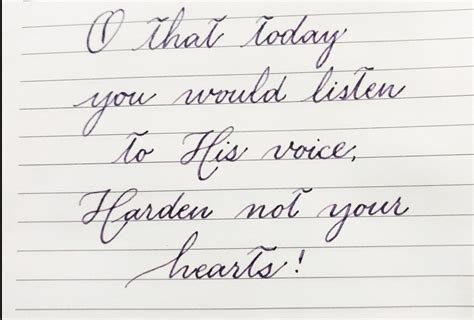 O that today
you would listen
to His voice,
Harden not your
hearts!